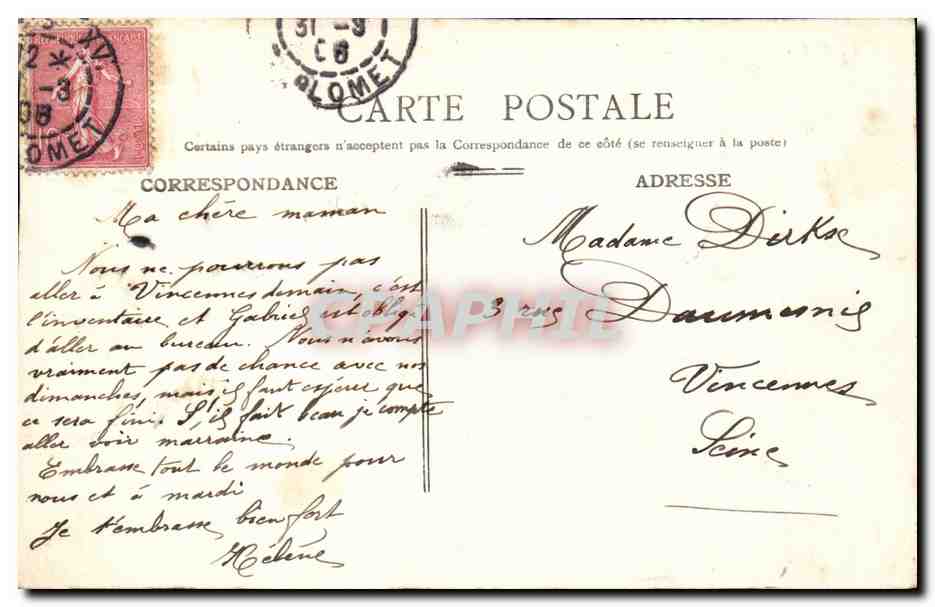 31 -3
06
BLOMET
XV
12 *
-3
06
BLOMET
FRANÇAISE
CARTE POSTALE
Certains pays étrangers n'acceptent pas la Correspondance de ce côté (se renseigner à la poste)
CORRESPONDANCE
Ma chère maman
Nous ne pourrons pas
aller à Vincennes demain, c'est
l'inventaire et Gabriel est obligé
d'aller au bureau. Nous n'avons
vraiment pas de chance avec nos
dimanches, mais il faut espérer que
ce sera fini. S'il fait beau je compte
aller voir marraine.
Embrasse tout le monde pour
nous et à mardi
Je t'embrasse bien fort
Hélène
ADRESSE
Madame Dirkse
3 rue Daumesnil
Vincennes
Seine
CPAPHIL